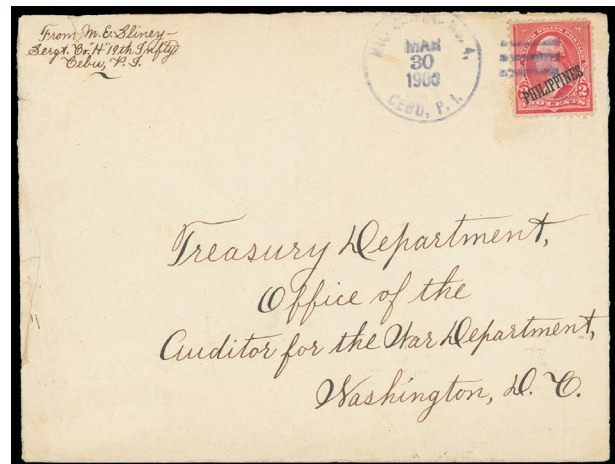 From M. E. Sliney-
Sergt. Co. "H" 19th Infty
Cebu, P. I.
MAR
30
1900
CEBU, P. I.
UNITED STATES POSTAGE
PHILIPPINES
2 2
TWO CENTS
Treasury Department,
Office of the
Auditor for the War Department,
Washington, D. C.